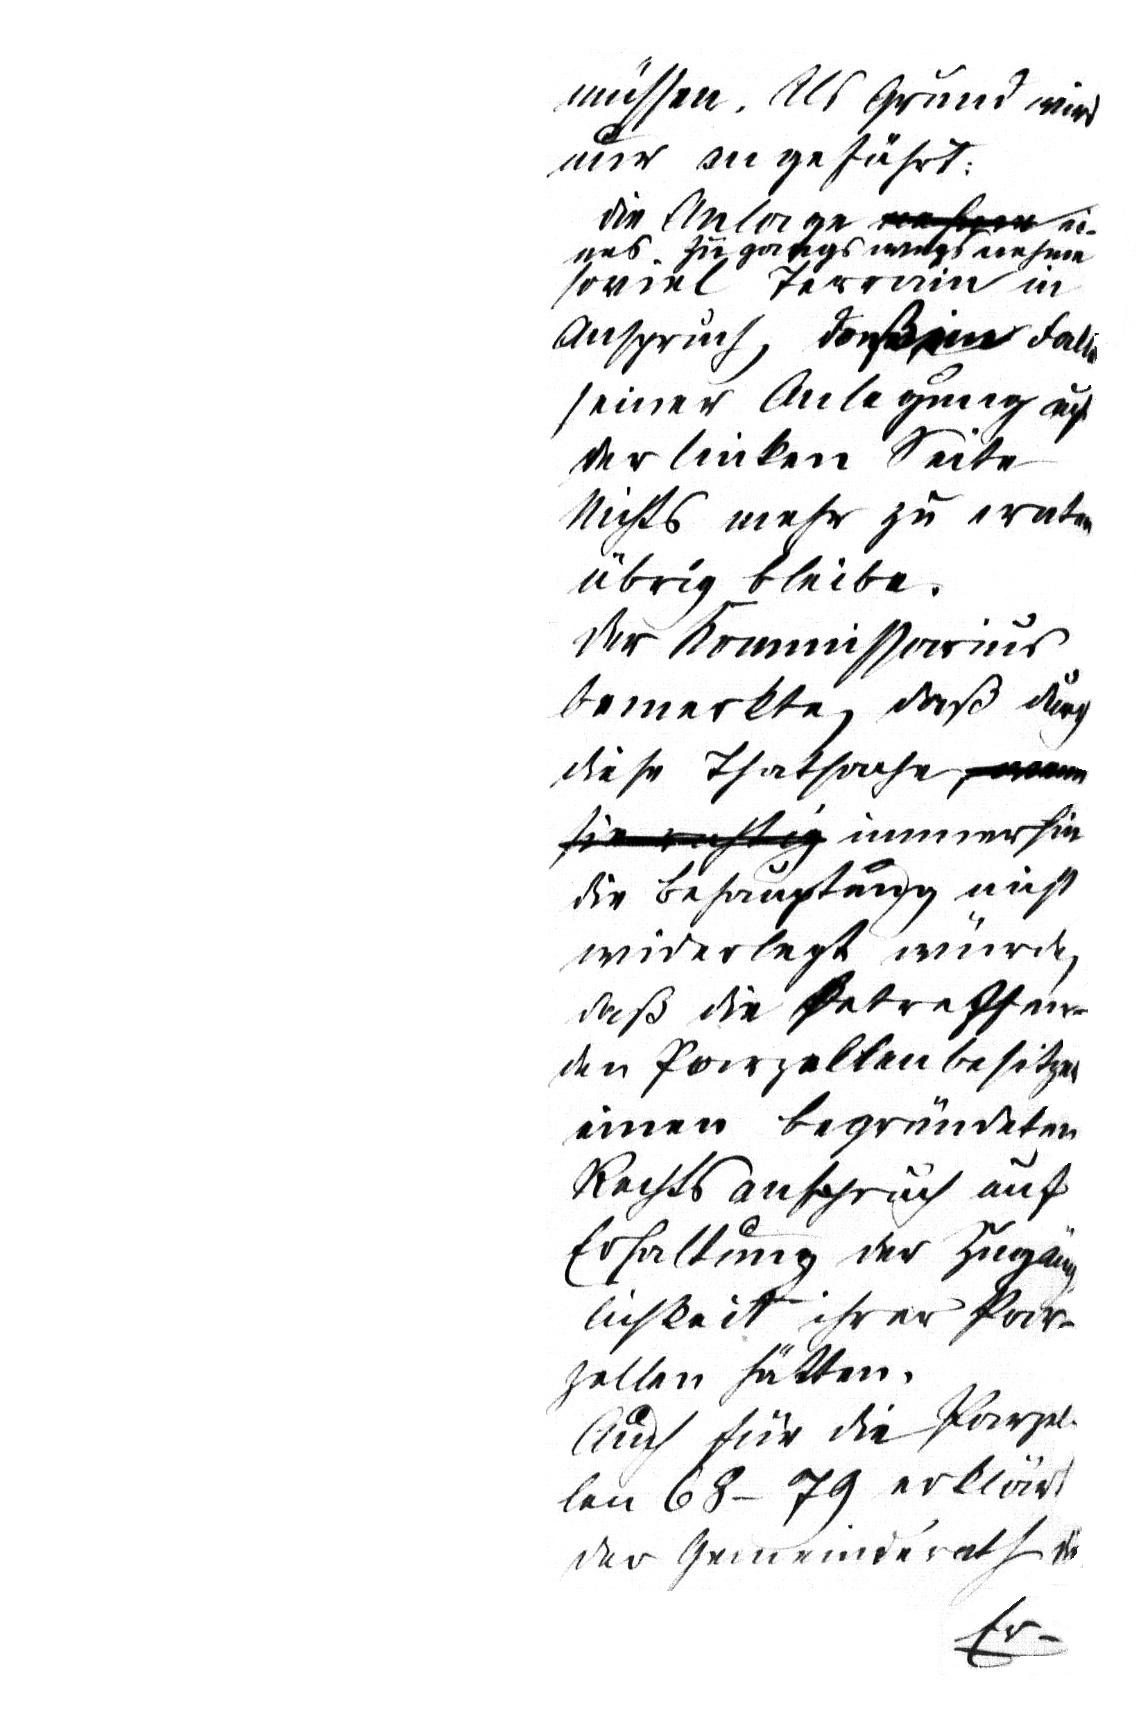 müssen. Als Grund wird
nur angeführt:
die Anlage nehme ei-
nes Zugangswegs nehme
soviel Terrain in
Anspruch, daß im Falle
seiner Anlegung auf
der linken Seite
Nichts mehr zu ernten
übrig bleibe.
Der Kommissarius
bemerkte, daß durch
diese Thatsache, wenn
sie richtig immerhin
die Behauptung nicht
widerlegt würde,
daß die betreffen-
den Parzellenbesitzer
einen begründeten
Rechtsanspruch auf
Erhaltung der Zugäng
lichkeit ihrer Par-
zellen hätten.
Auch für die Parzel-
len 68-79 erklärt
der Gemeinderath die
Er-